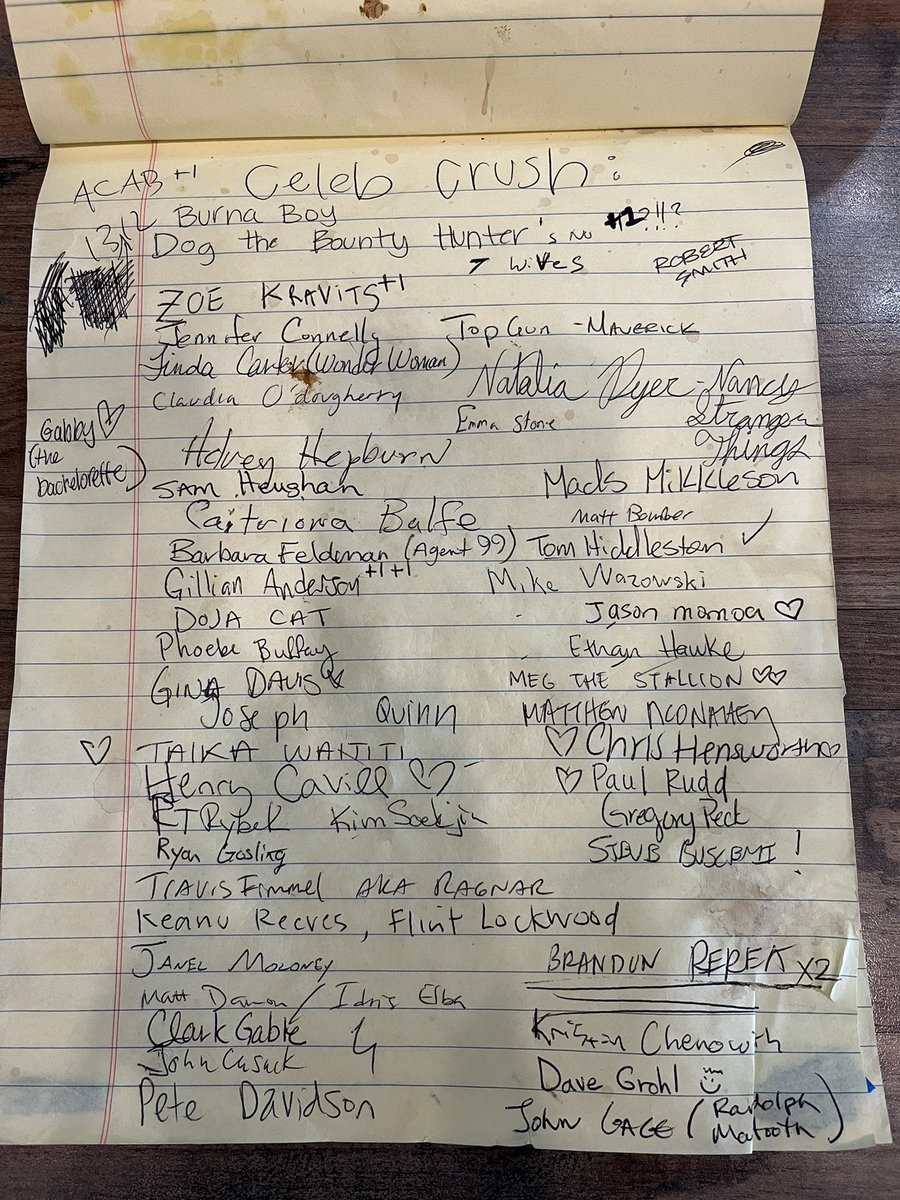 ACAB +1 Celeb Crush:
1312 Burna Boy
Dog the Bounty Hunter's no #1?!!?
7 wives
ROBERT
SMITH
ZOE KRAVITS +1
Jennifer Connelly TopGun - MAVERICK
Linda Carter (Wonder Woman)
Claudia O'dougherry
Natalia Dyer - Nancy
Stranger
Things
Emma Stone
Gabby ♡
(the
bachelorette)
Advey Hepburn
SAM Heughan Mads Mikkleson
Caitriona Balfe Matt Bomber
Barbara Feldman (Agent 99) Tom Hiddleston ✓
Gillian Anderson +1 +1 Mike Wazowski
DOJA CAT Jason momoa ♡
Phoebe Buffay Ethan Hawke
GINA DAVIS MEG THE STALLION ♡♡
Joseph Quinn MATTHEW
♡ TAIKA WAITITI ♡ Chris Hensworth ♡
Henry Cavill ♡ ♡ Paul Rudd
RT Rybek Kim Seokjin Gregory Peck
Ryan Gosling STEVE BUSCEMI !
TRAVIS Fimmel AKA RAGNAR
Keanu Reeves, Flint Lockwood
JANEL MOLONEY BRANDUN X2
Matt Damon / Idris Elba
Clark Gable Kristin Chenowith
John Cusack Dave Grohl
Pete Davidson John GAGE (Randolph
Matooth)